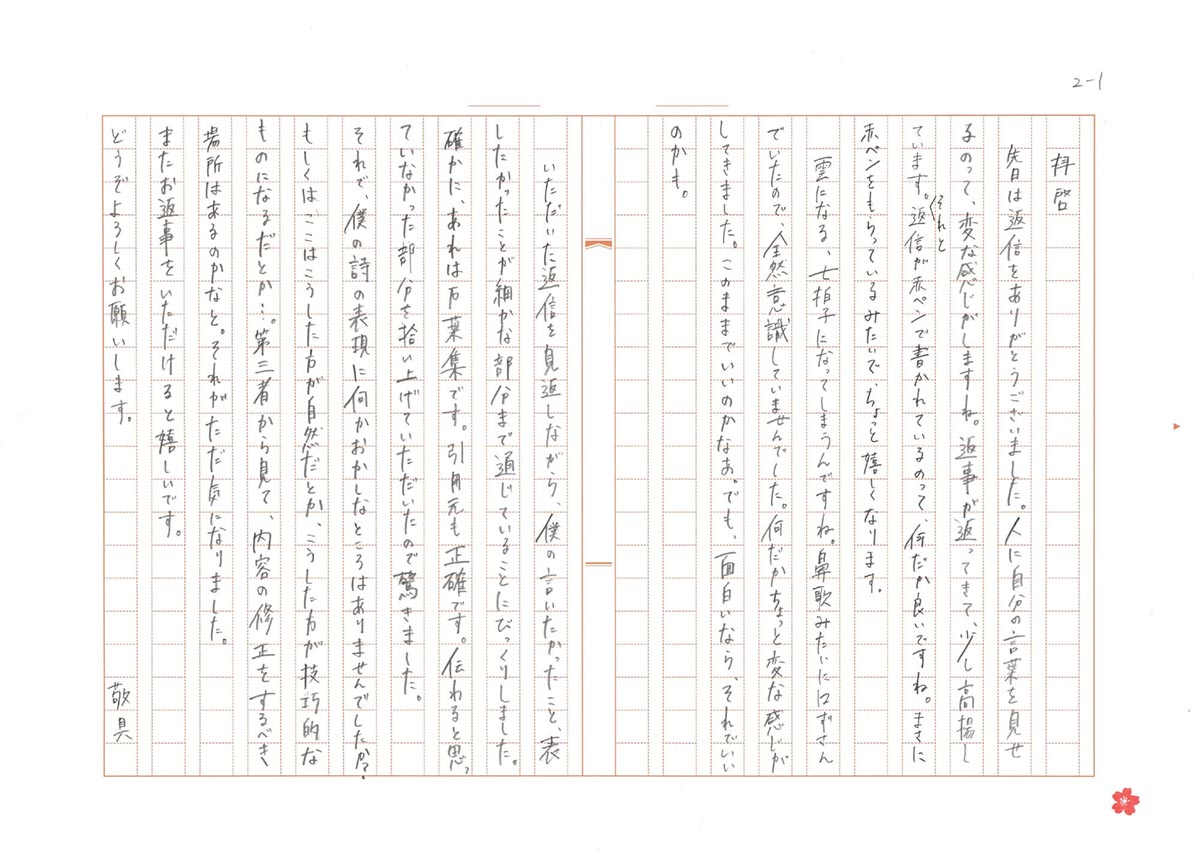 2-1
拝啓
先日は返信をありがとうございました。人に自分の言葉を見せ
るのって、変な感じがしますね。返事が返ってきて、少し高揚し
ています。それと返信が赤ペンで書かれているのって、何だか良いですね。まさに
赤ペンをもらっているみたいで、ちょっと嬉しくなります。
雲になる、七拍子になってしまうんですね。鼻歌みたいに口ずさん
でいたので、全然意識していませんでした。何だかちょっと変な感じが
してきました。このままでいいのかなぁ。でも、面白いなら、それでいい
のかも。
いただいた返信を見返しながら、僕の言いたかったこと、表
したかったことが細かな部分まで通じていることにびっくりしました。
確かに、あれは万葉集です。引用元も正確です。伝わると思っ
ていなかった部分を拾い上げていただいたので驚きました。
それで、僕の詩の表現に何かおかしなところはありませんでしたか?
もしくは、ここはこうした方が自然だとか、こうした方が技巧的な
ものになるだとか…。第三者から見て、内容の修正をするべき
場所はあるのかなと。それがただ気になりました。
またお返事をいただけると嬉しいです。
どうぞよろしくお願いします。
敬具